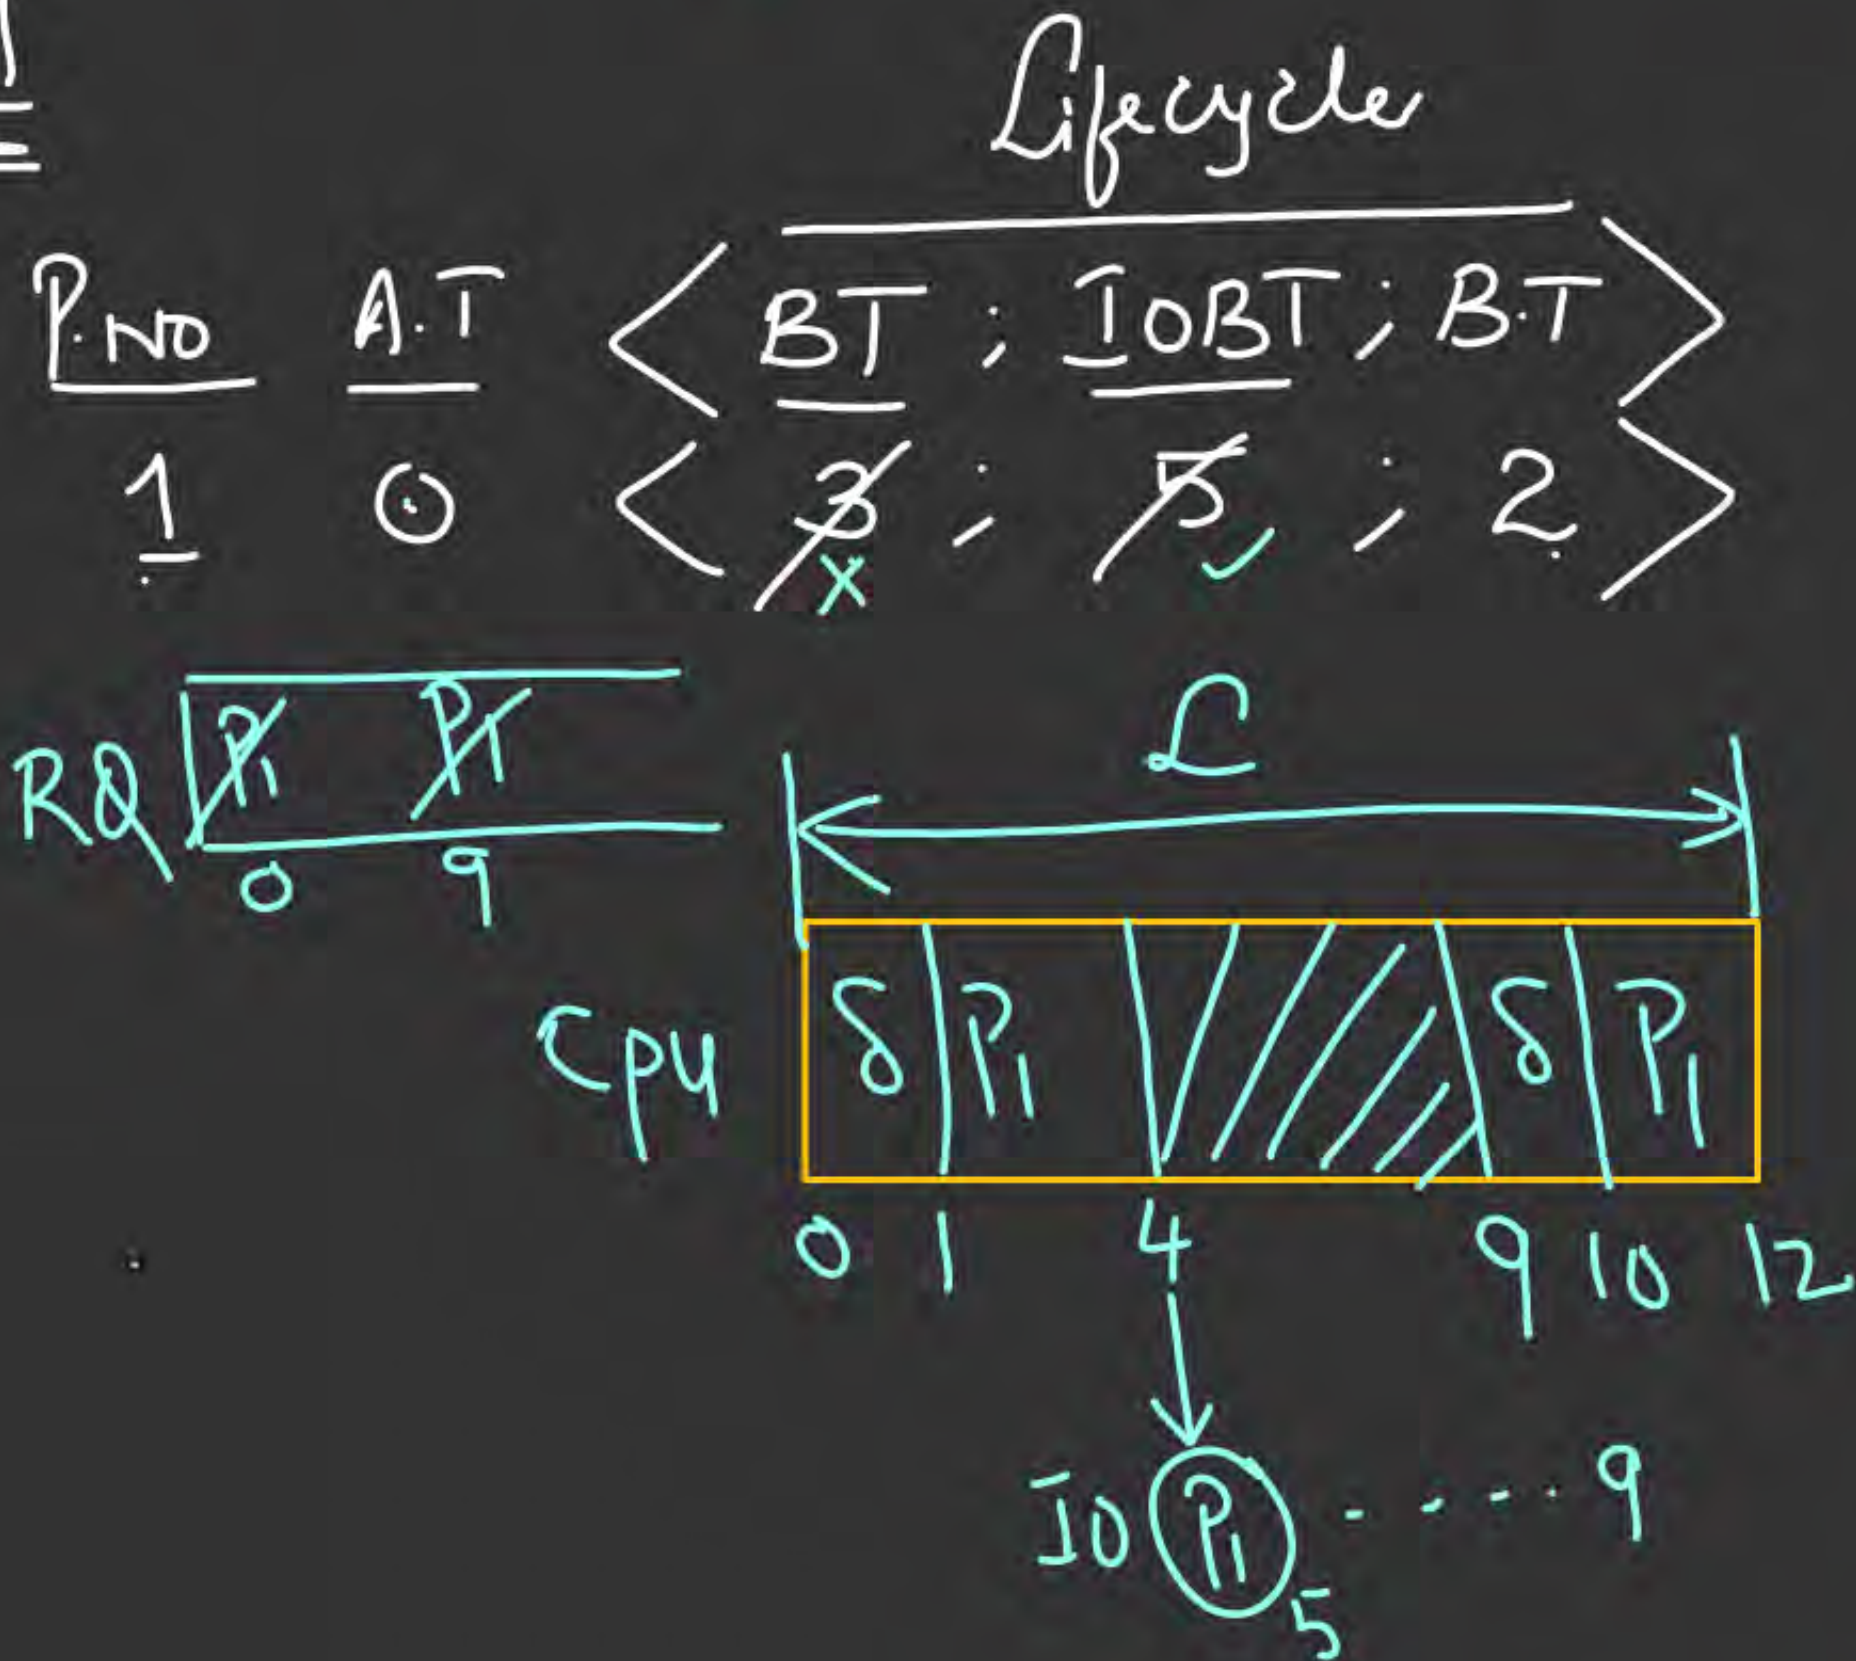 Lifecycle
P.NO A.T < BT ; IOBT ; B.T >
1 0 < 3 ; 5 ; 2 >
x ✓
RQ P1 P1
0 9
L
CPU δ P1 δ P1
0 1 4 9 10 12
IO P1 5 .... 9